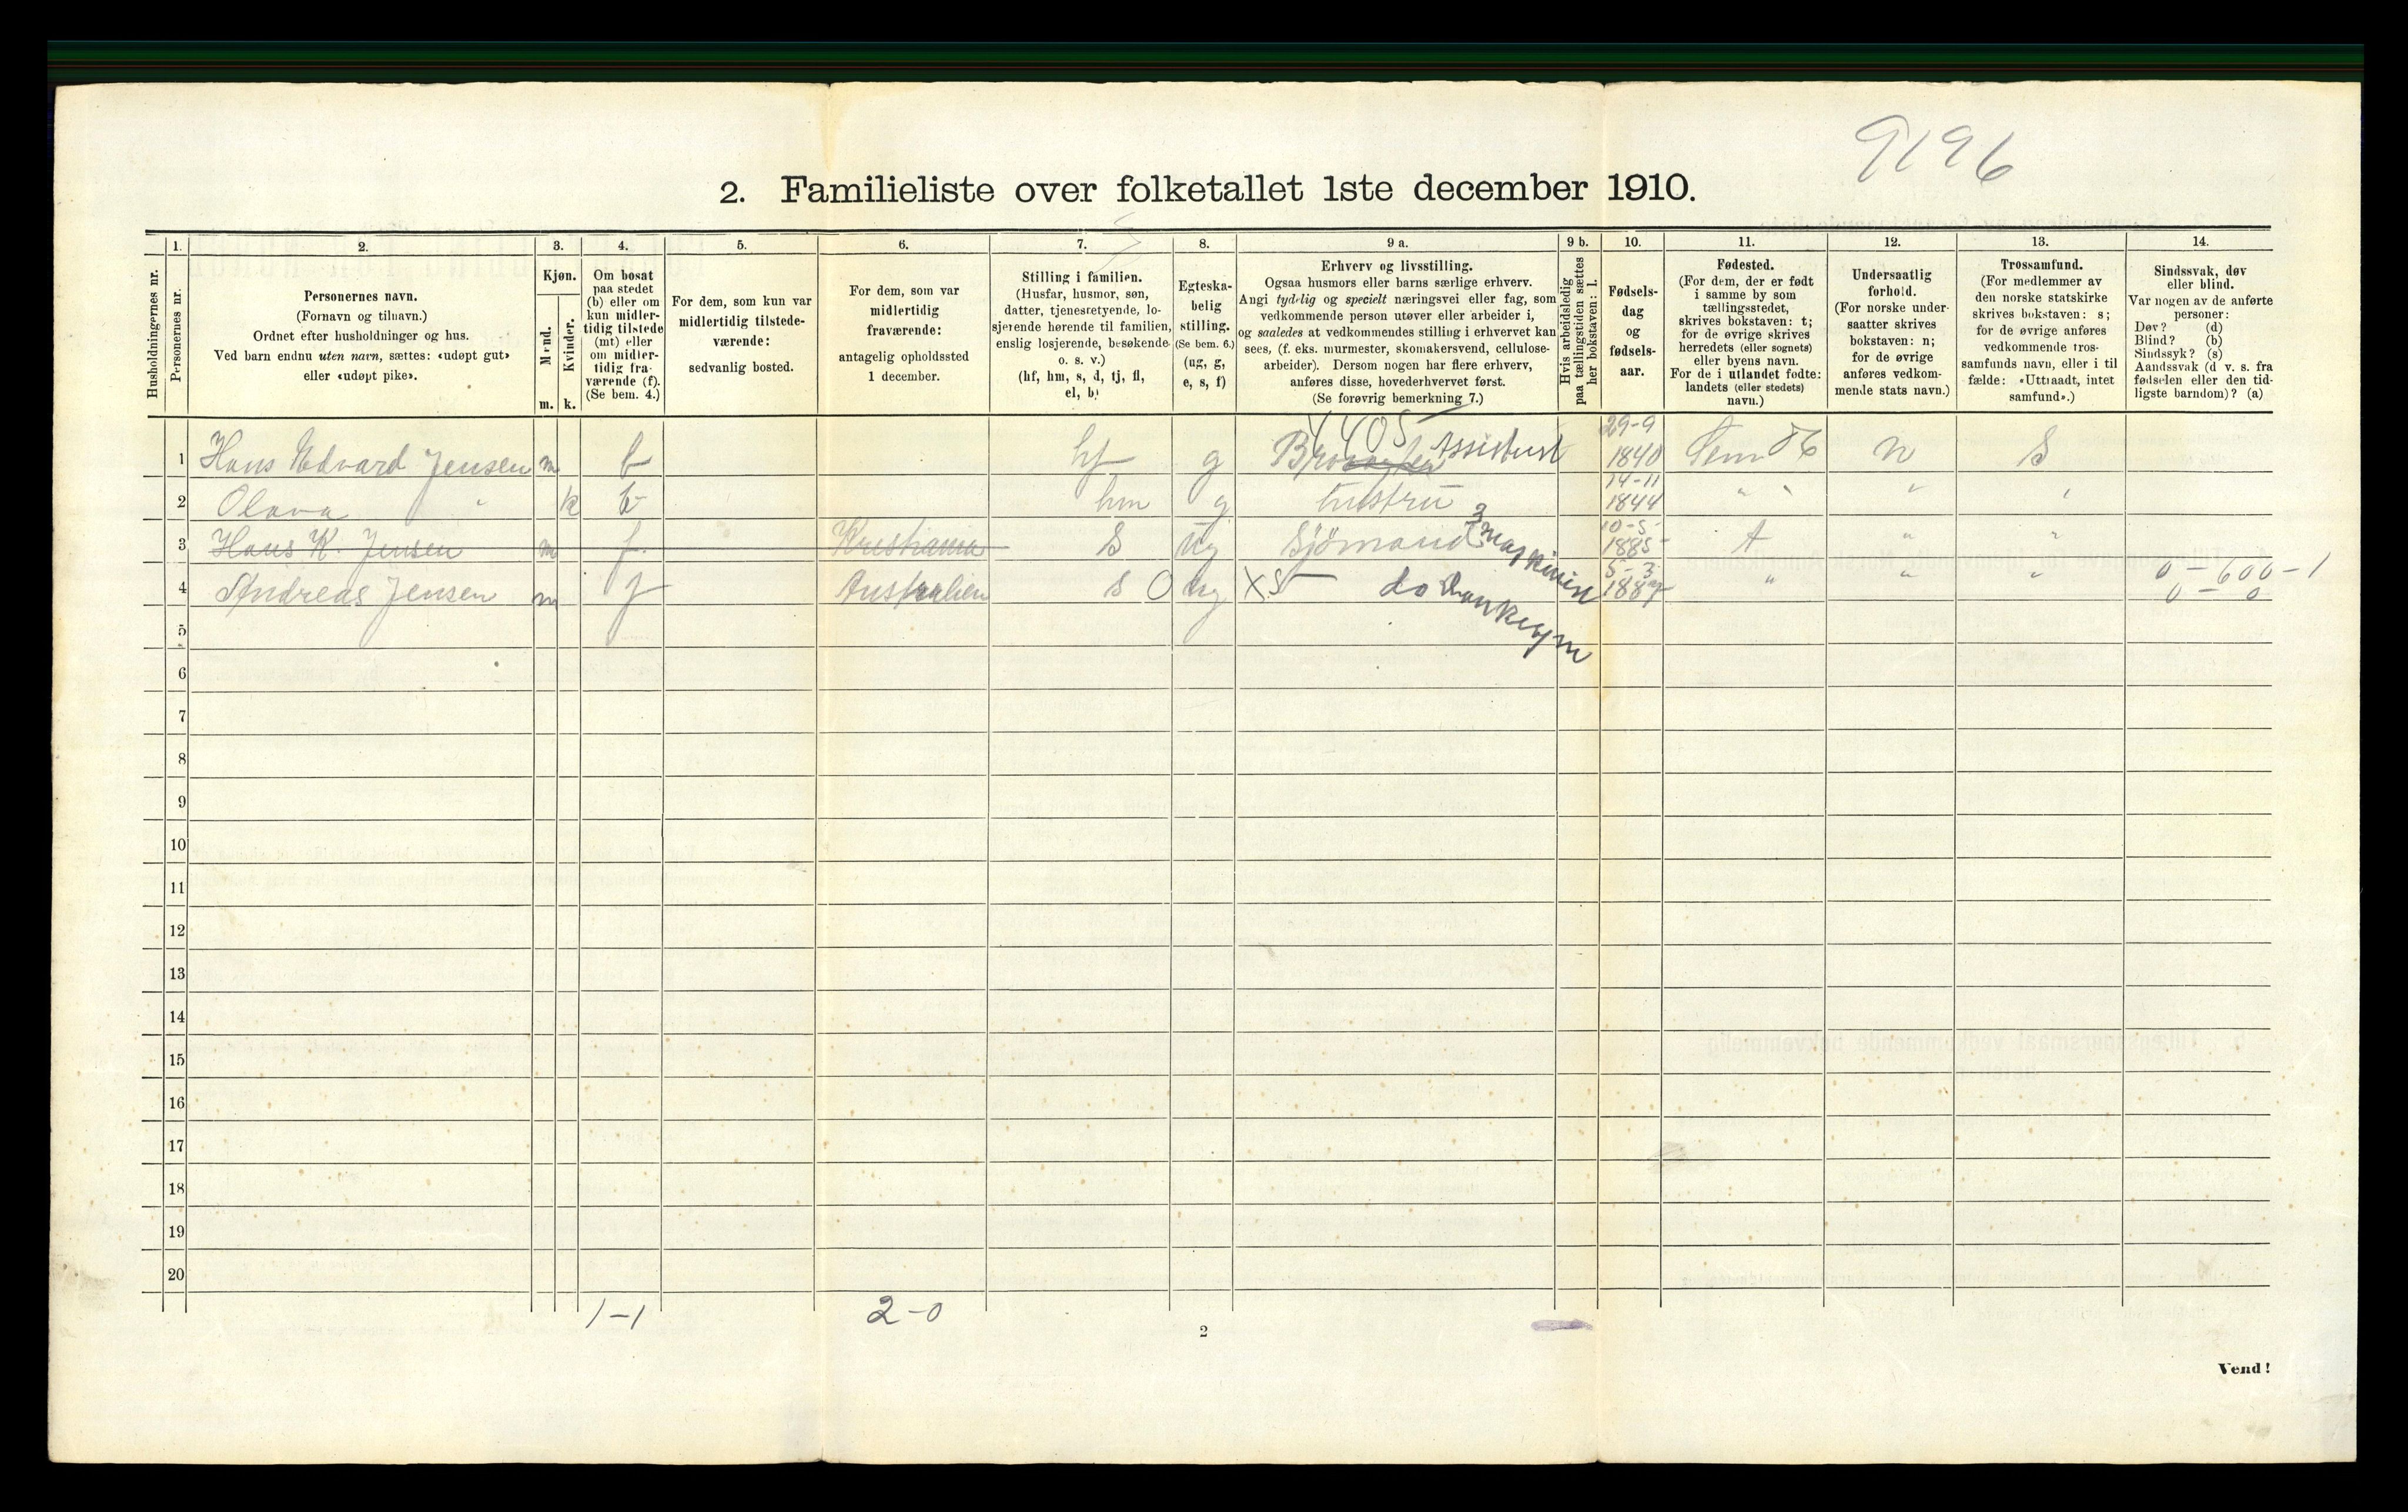 9196
2. Familieliste over folketallet 1ste december 1910.
Husholdningernes nr.
1. Personernes nr.
2. Personernes navn. (Fornavn og tilnavn.) Ordnet efter husholdninger og hus. Ved barn endnu uten navn, sættes: «udøpt gut» eller «udøpt pike».
3. Kjøn. Mænd. m. Kvinder. k.
4. Om bosat paa stedet (b) eller om kun midlertidig tilstede (mt) eller om midlertidig fraværende (f). (Se bem. 4.)
5. For dem, som kun var midlertidig tilstedeværende: sedvanlig bosted.
6. For dem, som var midlertidig fraværende: antagelig opholdssted 1 december.
7. Stilling i familien. (Husfar, husmor, søn, datter, tjenestetyende, losjerende hørende til familien, enslig losjerende, besøkende o. s. v.) (hf, hm, s, d, tj, fl, el, b)
8. Egteskabelig stilling. (Se bem. 6.) (ug, g, e, s, f)
9 a. Erhverv og livsstilling. Ogsaa husmors eller barns særlige erhverv. Angi tydelig og specielt næringsvei eller fag, som vedkommende person utøver eller arbeider i, og saaledes at vedkommendes stilling i erhvervet kan sees, (f. eks. murmester, skomakersvend, cellulosearbeider). Dersom nogen har flere erhverv, anføres disse, hovederhvervet først. (Se forøvrig bemerkning 7.)
9 b. Hvis arbeidsledig paa tællingstiden sættes her bokstaven: l.
10. Fødselsdag og fødselsaar.
11. Fødested. (For dem, der er født i samme by som tællingsstedet, skrives bokstaven: t; for de øvrige skrives herredets (eller sognets) eller byens navn. For de i utlandet fødte: landets (eller stedets) navn.)
12. Undersaatlig forhold. (For norske undersaatter skrives bokstaven: n; for de øvrige anføres vedkommende stats navn.)
13. Trossamfund. (For medlemmer av den norske statskirke skrives bokstaven: s; for de øvrige anføres vedkommende trossamfunds navn, eller i tilfælde: «Uttraadt, intet samfund».)
14. Sindssvak, døv eller blind. Var nogen av de anførte personer: Døv? (d) Blind? (b) Sindssyk? (s) Aandssvak (d. v. s. fra fødselen eller den tidligste barndom)? (a)
4405
1 Hans Edvard Jensen m b hf g Assistent 29-9 1840 Sem n S
2 Olava " k b hm g hustru 14-11 1844 " " " "
3 Hans K. Jensen m f Kristiania S ug Sjömand 3 maskinist 10-5- 1885 t " "
4 Andreas Jensen m f Australien s O ug X5 do 5-3 1887 " " " 0-600-1
0-0
5
6
7
8
9
10
11
12
13
14
15
16
17
18
19
20
1-1 2-0
2
Vend!